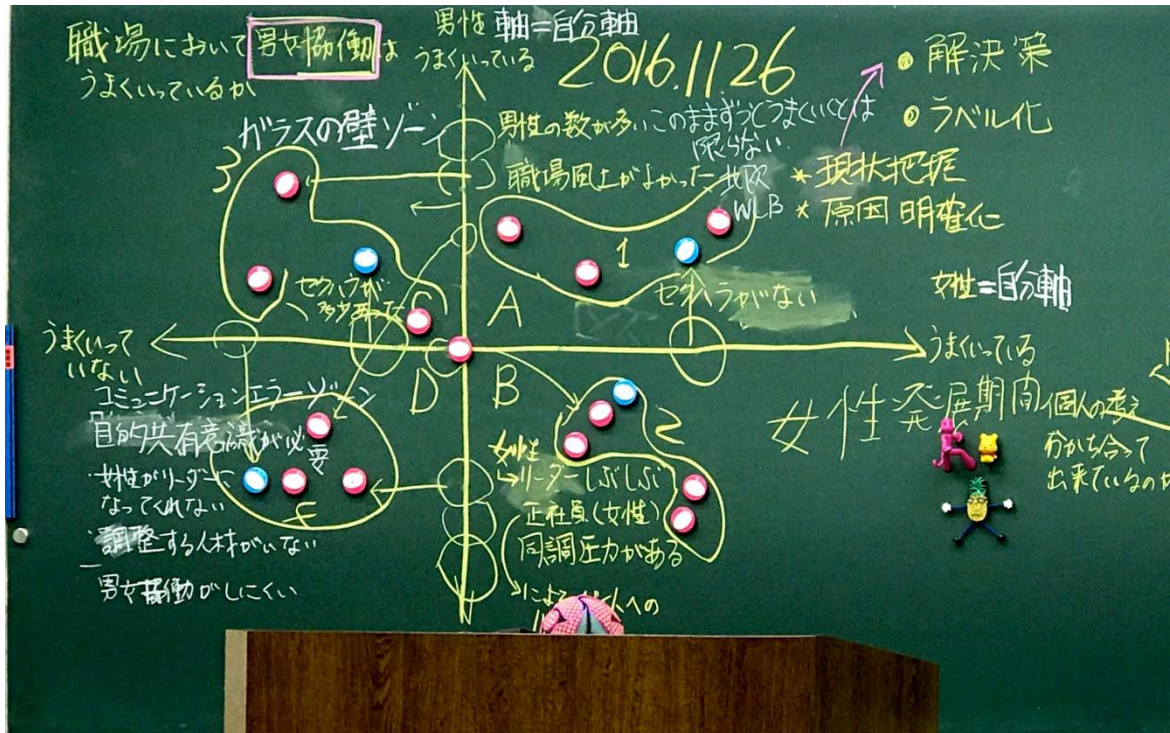 職場において男女協働は
うまくいっているか
男性 軸=自分軸
うまくいっている
2016.11.26
・解決策
・ラベル化
*現状把握
*原因明確化
ガラスの壁ゾーン
男性の数が多い このままずっとうまくいくとは
限らない
職場風土がよかった 北欧
WLB
3
1
セクハラがない
セクハラが
多少あった
女性=自分軸
A
C
うまくいって
いない
うまくいっている
D
B
2
コミュニケーションエラーゾーン
目的共有意識が必
要
・女性がリーダーに
なってくれない
・調整する人材がいない
男女協働がしにくい
4
女性
→リーダー しぶしぶ
正社員(女性)
同調圧力がある
による
人への
女性発展期間
個人の考え
分かち合って
出来ているのか